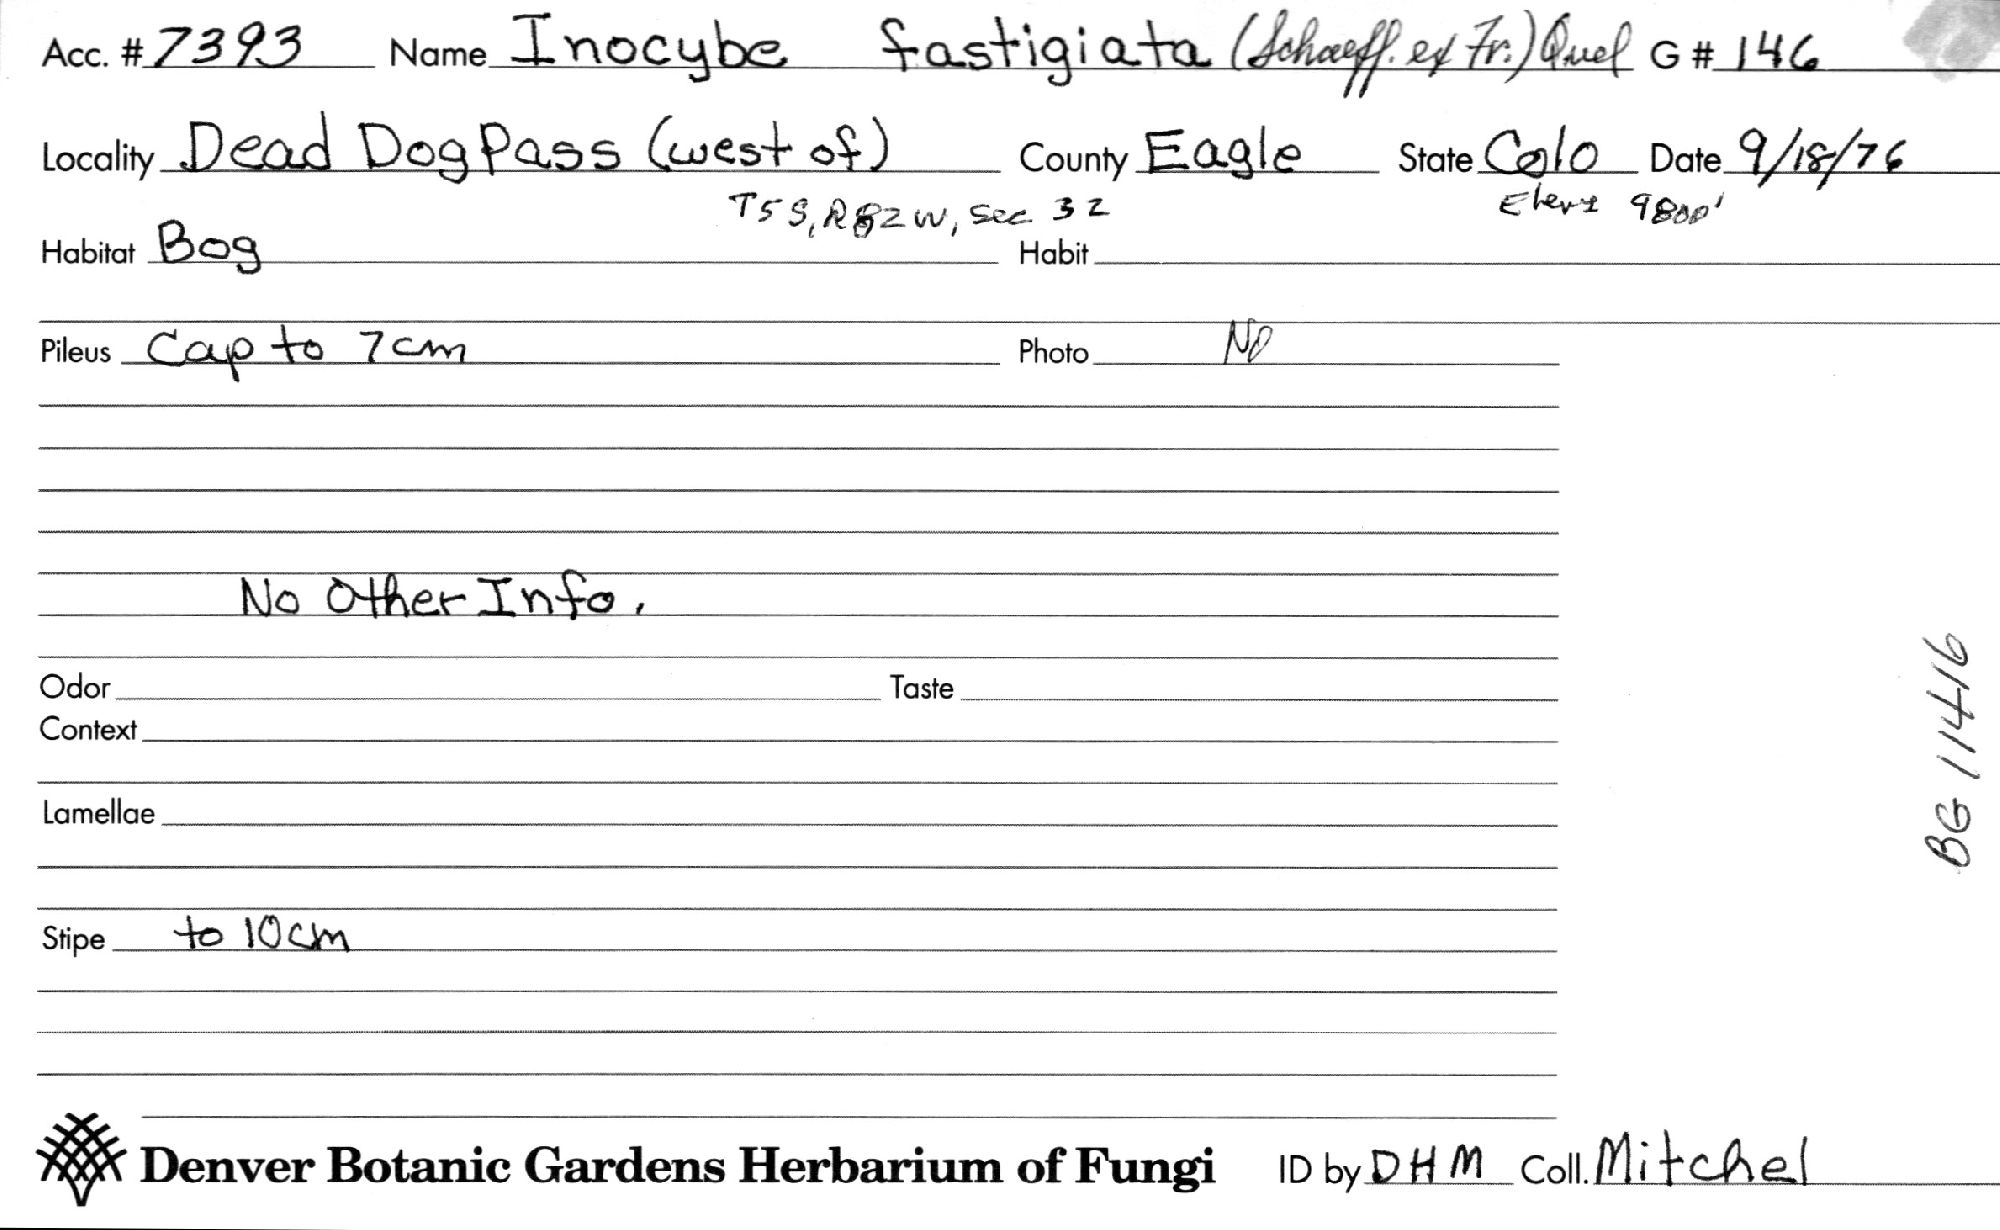 Acc. # 7393 Name Inocybe fastigiata (Schaeff. ex Fr.) Quel G # 146
Locality Dead Dog Pass (west of) County Eagle State Colo Date 9/18/76
T5S, R82W, Sec 32 Elev± 9800'
Habitat Bog Habit
Pileus Cap to 7cm Photo No
No Other Info.
Odor Taste
Context
Lamellae
Stipe to 10cm
Denver Botanic Gardens Herbarium of Fungi ID by DHM Coll. Mitchel
BG 11416